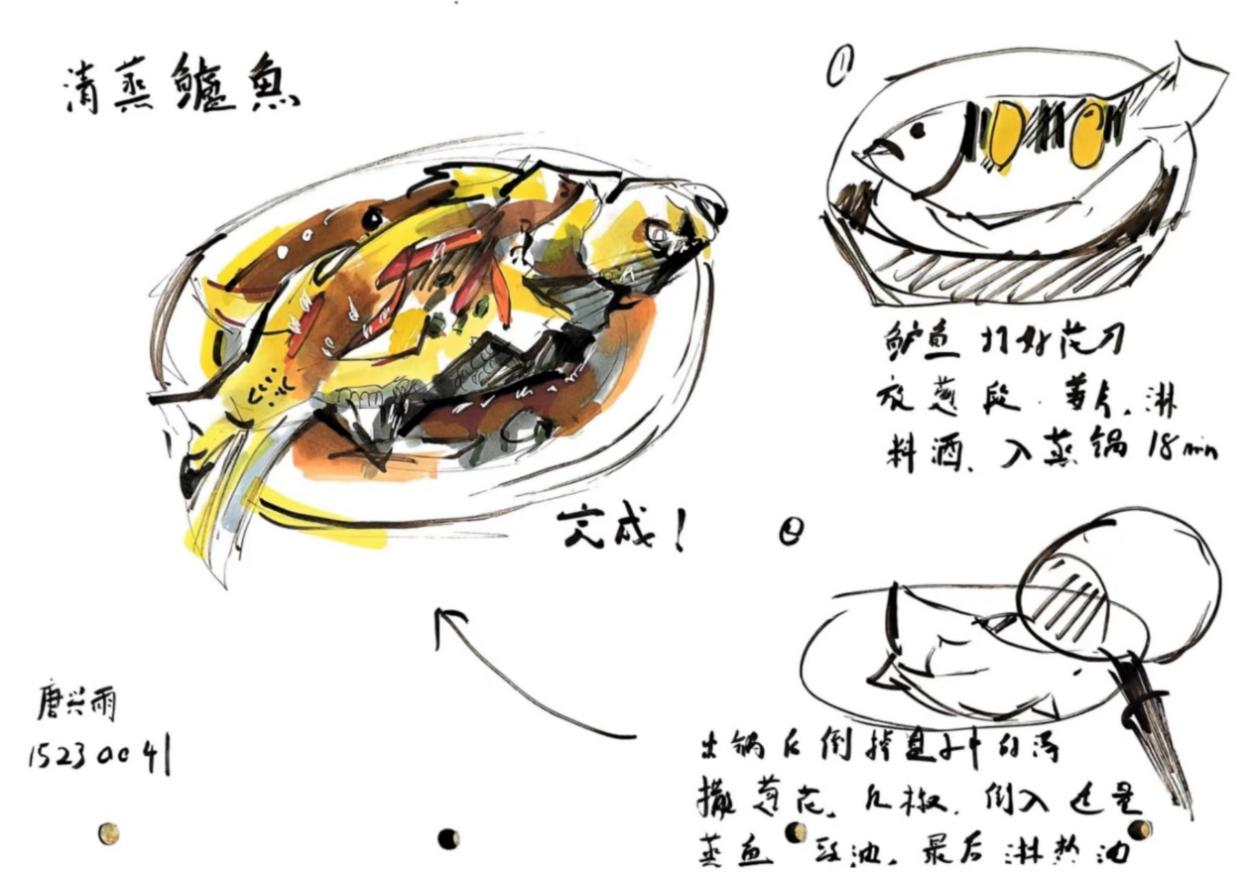 清蒸鱸魚
①
鲈鱼打好花刀
放葱段、姜片、淋
料酒、入蒸锅18min
完成!
②
出锅后倒掉盘子中的汤
撒葱花、几椒、倒入适量
蒸鱼豉油、最后淋热油
唐兴雨
1523004